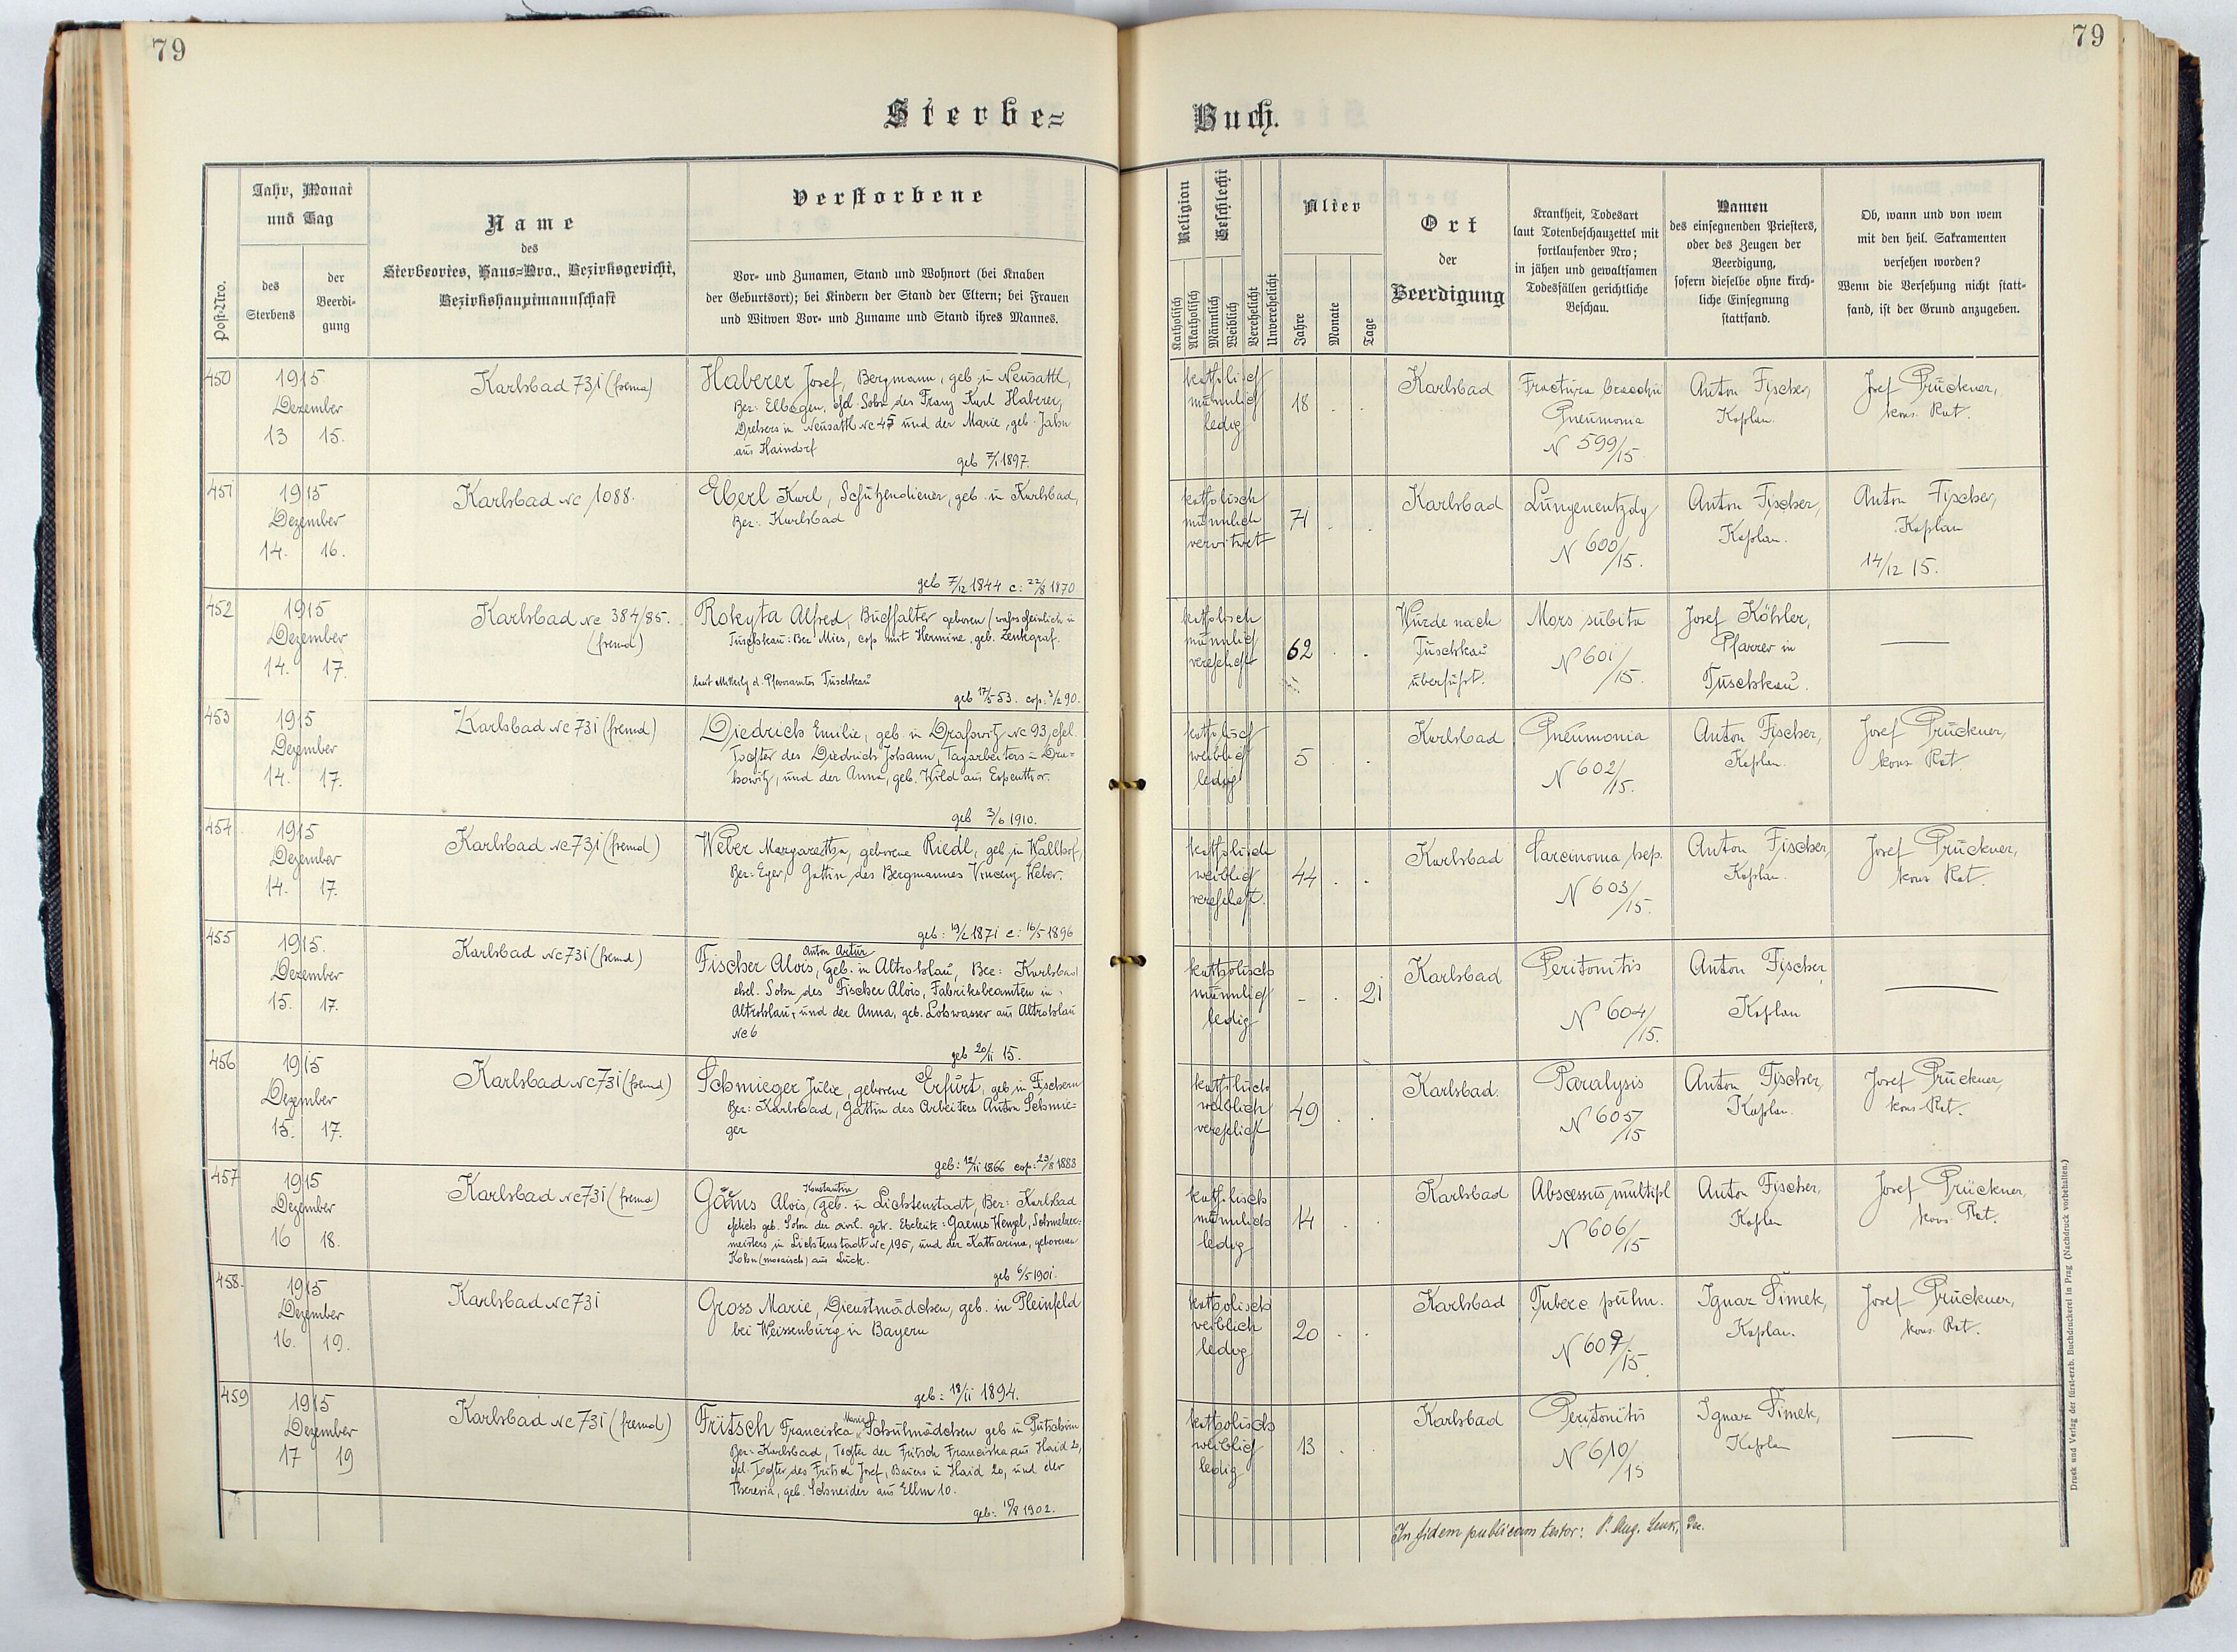 79
79
Sterbe=
Buch.
Post-Nro.
Jahr, Monat
und Tag
des
Sterbens
der
Beerdi-
gung
Name
des
Sterbeortes, Haus=Nro., Bezirksgericht,
Bezirkshauptmannschaft
Verstorbene
Vor- und Zunamen, Stand und Wohnort (bei Knaben
der Geburtsort); bei Kindern der Stand der Eltern; bei Frauen
und Witwen Vor- und Zuname und Stand ihres Mannes.
Religion
Katholisch
Akatholisch
Geschlecht
Männlich
Weiblich
Verehelicht
Unverehelicht
Alter
Jahre
Monate
Tage
Ort
der
Beerdigung
Krankheit, Todesart
laut Totenbeschauzettel mit
fortlaufender Nro;
in jähen und gewaltsamen
Todesfällen gerichtliche
Beschau.
Namen
des einsegnenden Priesters,
oder des Zeugen der
Beerdigung,
sofern dieselbe ohne kirch-
liche Einsegnung
stattfand.
Ob, wann und von wem
mit den heil. Sakramenten
versehen worden?
Wenn die Versehung nicht statt-
fand, ist der Grund anzugeben.
450
1915
Dezember
13 15.
Karlsbad 731 (fremd)
Haberer Josef, Bergmann, geb. in Neusattl,
Bez: Elbogen, ehel. Sohn des Franz Karl Haberer,
Drehers in Neusattl Nc 45 und der Marie, geb. Jahn
aus Haindorf
geb 7/1 1897.
katholisch
männlich
ledig
18 . .
Karlsbad
Fractura bracchii
Pneumonia
N 599/15
Anton Fischer,
Kaplan.
Josef Prückner,
kons. Rat.
451
1915
Dezember
14. 16.
Karlsbad Nc 1088.
Eberl Karl, Schützendiener, geb. in Karlsbad,
Bez: Karlsbad
geb 7/12 1844 c: 22/8 1870
katholisch
männlich
verwitwet
71 . .
Karlsbad
Lungenentzdg
N 600/15.
Anton Fischer,
Kaplan.
Anton Fischer,
Kaplan
14/12 15.
452
1915
Dezember
14. 17.
Karlsbad Nc 384/85.
(fremd)
Rokyta Alfred, Buchhalter geboren (wahrscheinlich in
Tuschkau: Bez Mies, cop mit Hermine, geb. Zenkgraf.
laut Mitteilg d. Pfarramtes Tuschkau
geb 17/5 53. cop: 3/2 90.
katholisch
männlich
verehelicht
62 . .
Wurde nach
Tuschkau
überführt.
Mors subita
N 601/15.
Josef Köhler,
Pfarrer in
Tuschkau.
453
1915
Dezember
14. 17.
Karlsbad Nc 731 (fremd)
Diedrich Emilie, geb. in Drahowitz Nc 93, ehel.
Tochter des Diedrich Johann, Tagarbeiters in Dra-
howitz, und der Anna, geb. Wild aus Espenthor.
geb 3/6 1910.
katholisch
weiblich
ledig
5 . .
Karlsbad
Pneumonia
N 602/15.
Anton Fischer,
Kaplan.
Josef Prückner,
kons. Rat.
454
1915
Dezember
14. 17.
Karlsbad Nc 731 (fremd)
Weber Margaretha, geborene Riedl, geb. in Wallhof,
Bez: Eger, Gattin des Bergmannes Vincenz Weber.
geb: 19/2 1871 c: 16/5 1896
katholisch
weiblich
verehelicht.
44 . .
Karlsbad
Carcinoma hep.
N 603/15.
Anton Fischer,
Kaplan.
Josef Prückner,
kons. Rat.
455
1915.
Dezember
15. 17.
Karlsbad Nc 731 (fremd)
Anton Artur
Fischer Alois, geb. in Altrohlau, Bez: Karlsbad
ehel. Sohn des Fischer Alois, Fabriksbeamten in
Altrohlau, und der Anna, geb. Lobwasser aus Altrohlau
Nc 6
geb 20/11 15.
katholisch
männlich
ledig
- . 21
Karlsbad
Peritonitis
N 604/15.
Anton Fischer,
Kaplan
456
1915
Dezember
15. 17.
Karlsbad Nc 731 (fremd)
Schmieger Julie, geborene Erfurt, geb. in Fischern
Bez: Karlsbad, Gattin des Arbeiters Anton Schmie-
ger
geb: 12/11 1866 cop: 29/8 1888
katholisch
weiblich
verehelicht
49 . .
Karlsbad.
Paralysis
N 605/15
Anton Fischer,
Kaplan.
Josef Prückner,
kons. Rat.
457
1915
Dezember
16 18.
Karlsbad Nc 731 (fremd)
Konstantin
Gäns Alois, geb. in Lichtenstadt, Bez: Karlsbad
ehelich geb. Sohn der civil. getr. Eheleute: Gaens Wenzl, Schmelzer-
meisters in Lichtenstadt Nc 195, und der Katharina, geborenen
Kohn (mosaisch) aus Luck.
geb 6/5 1901.
katholisch
männlich
ledig
14 . .
Karlsbad
Abscessus multipl
N 606/15
Anton Fischer,
Kaplan
Josef Prückner,
kons. Rat.
458.
1915
Dezember
16. 19.
Karlsbad Nc 731
Gross Marie, Dienstmädchen, geb. in Pleinfeld
bei Weissenburg in Bayern
geb: 18/11 1894.
katholisch
weiblich
ledig
20 . .
Karlsbad
Tuberc pulm.
N 609/15.
Ignaz Simek,
Kaplan.
Josef Prückner,
kons. Rat.
459
1915
Dezember
17 19
Karlsbad Nc 731 (fremd)
Maria
Fritsch Franciska Schulmädchen geb in Putschirn
Bez: Karlsbad, Tochter der Fritsch Franciska aus Haid 20,
ehel. Tochter des Fritsch Josef, Bauers in Haid 20, und der
Theresia, geb. Schneider aus Ellm 10.
geb: 15/8 1902.
katholisch
weiblich
ledig
13 . .
Karlsbad
Peritonitis
N 610/15
Ignaz Simek,
Kaplan
In fidem publicam testor: P. Aug.
Druck und Verlag der fürst-erzb. Buchdruckerei in Prag (Nachdruck vorbehalten.)